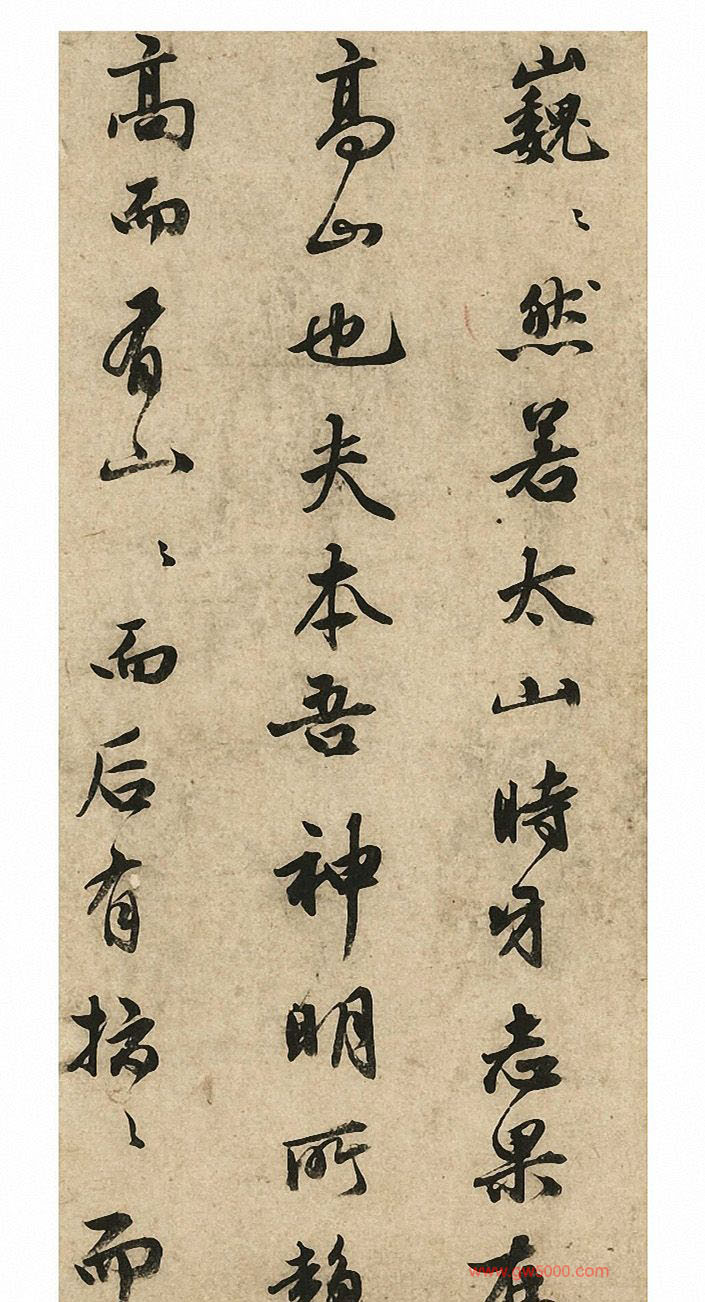 巍〻然若太山時牙志果在
高山也夫本吾神明所
高而有山〻而后有〻而
www.gw5000.com